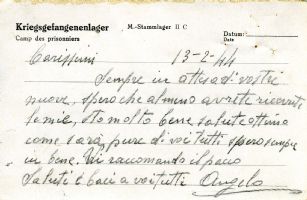 Kriegsgefangenenlager M.-Stammlager II C
Camp des prisonniers
Datum:
Date
Carissimi 13-2-44
Sempre in attesa di vostre
nuove, spero che almeno avrete ricevuto
le mie, sto molto bene salute ottima
come sarà pure di voi tutti spero sempre
in bene. Vi raccomando il pacco
Saluti e baci a voi tutti Angelo